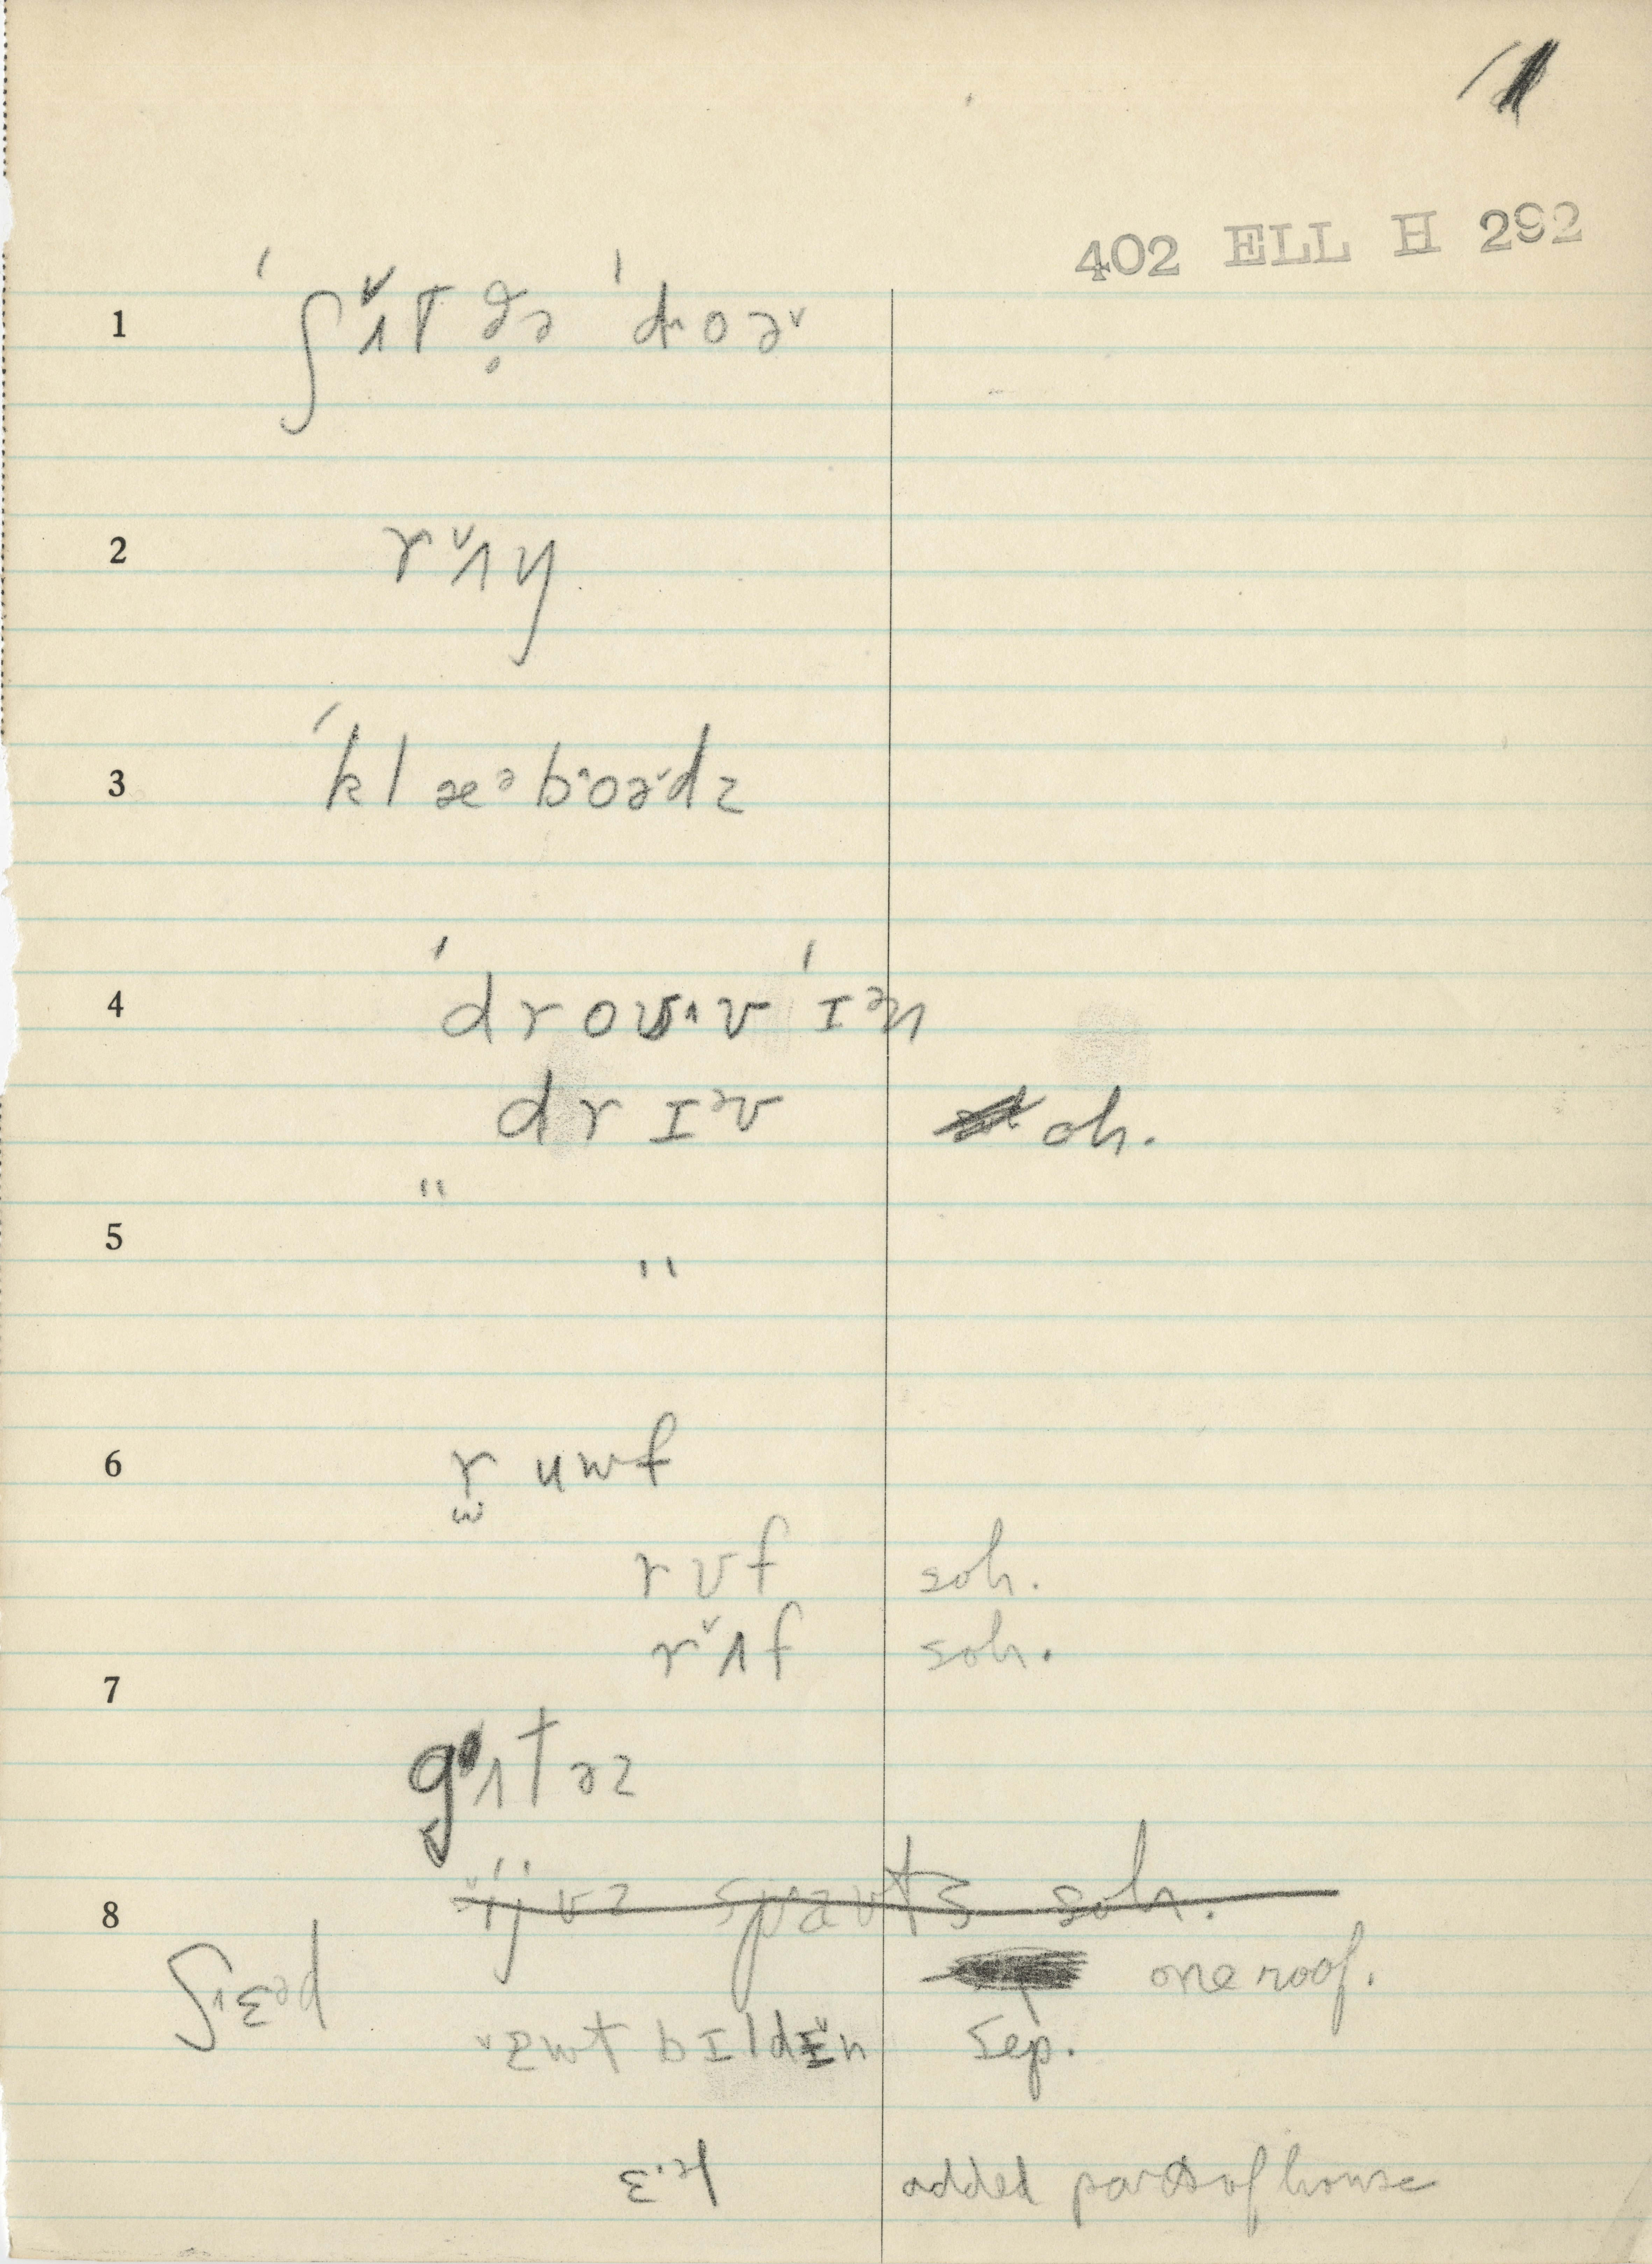 11
402 ELL H 292
1 ˈʃʌ̌t ðə̥ ˈdroə˞
2 rʌ̌ŋ
3 ˈklæᵊboə˞dz
4 ˈdroʊv ˈɪᵊn
drɪᵊv oh.
" "
5
6 ruwf
rʊf soh.
rʌ̌f soh.
7
gʌtəz
8 ijvz spaʊts soh.
ʃɛᵊd one roof.
ɛwt bɪldɪ̌n sep.
ɛᵊl added part of house